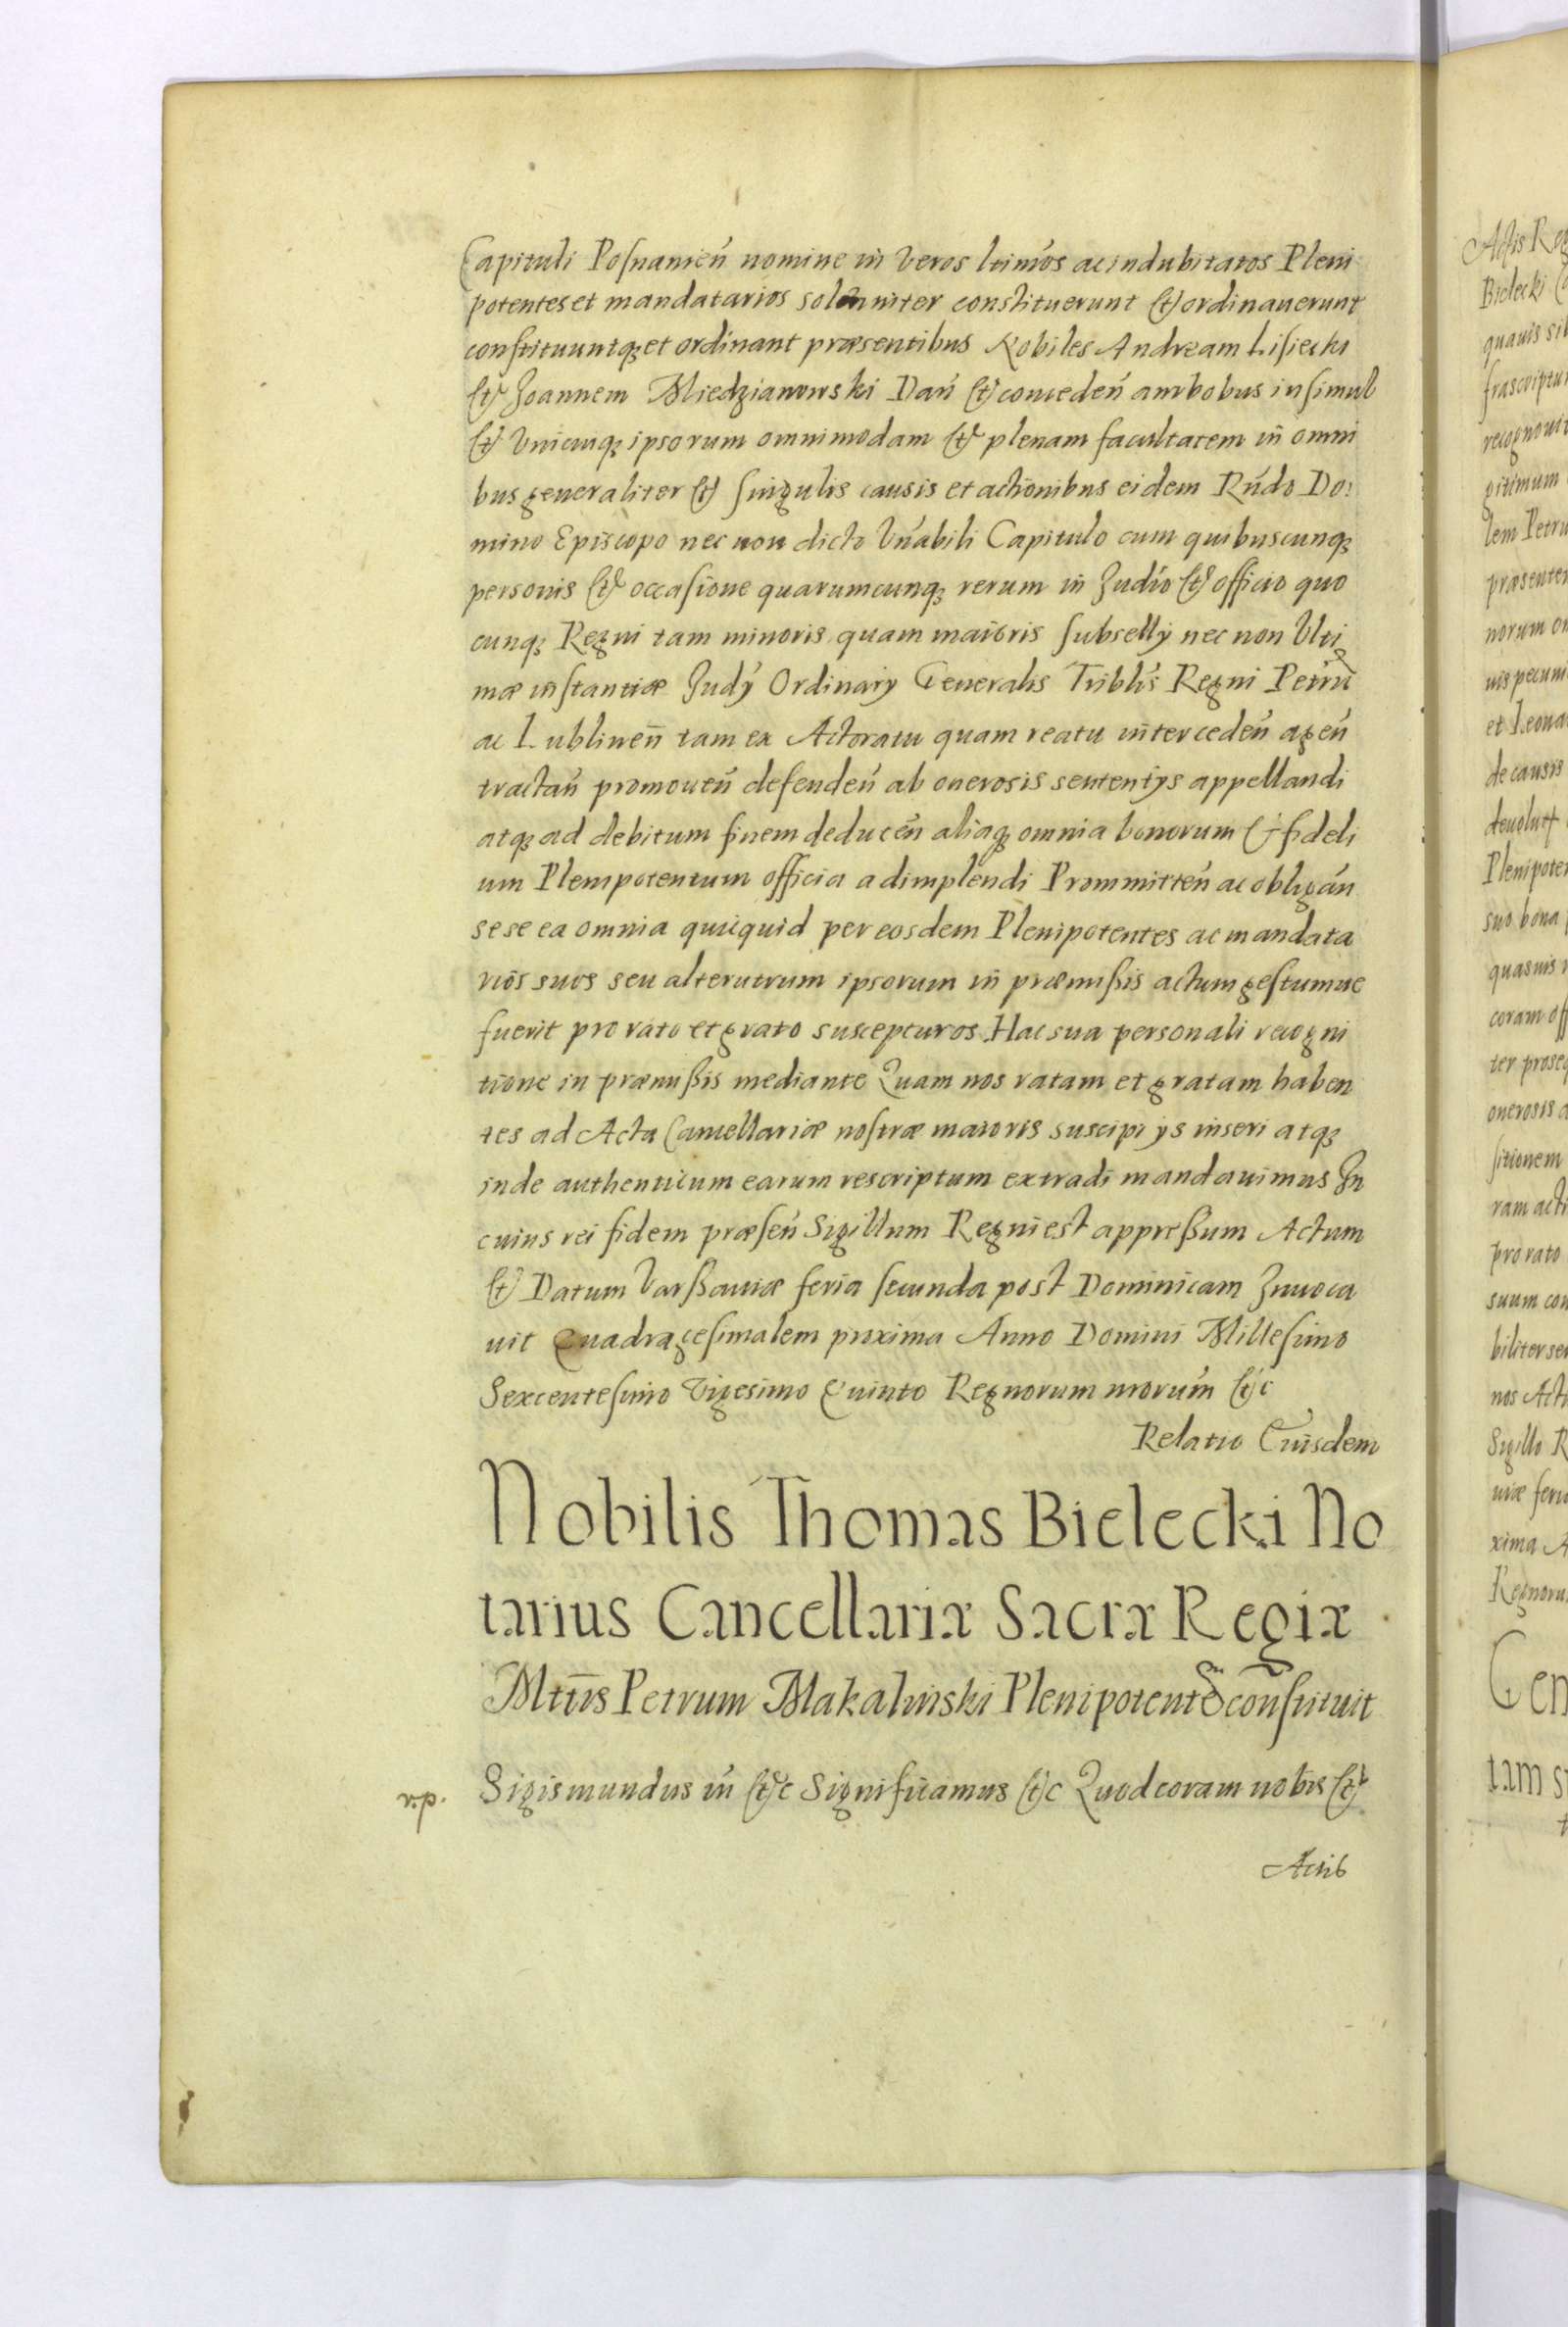 Capituli Posnanień nomine in Veros ltimos ac indubitatos Pleni
potentes et mandatarios solenniter constituerunt et ordinauerunt
constituuntq; et ordinant præsentibus Nobiles Andream Lisiecki
et Joannem Miedzianowski Dań et conceden̄ ambobus insimul
et Vnicuiq; ipsorum omnimodam et plenam facultatem in omni
bus generaliter et singulis causis et actionibus eidem Rńdo Do:
mino Episcopo nec non dicto Vńabili Capitulo cum quibuscunq;
personis et occasione quarumcunq; rerum in Judio et officio quo
cunq; Regni tam minoris quam maioris subsellij nec non Vlti
mæ instantiæ Judij Ordinarij Generalis Triblis Regni Petrn̄
ac Lublinen̄ tam ex Actoratu quam reatu interceden̄ agen̄
tractań promouen̄ defenden̄ ab onerosis sententijs appellandi
atq; ad debitum finem deducen̄ aliaq; omnia bonorum et fideli
um Plenipotentum officia adimplendi Prommitten̄ ac obligań
sese ea omnia quicquid per eosdem Plenipotentes ac mandata
rios suos seu alterutrum ipsorum in præmissis actum gestumue
fuerit pro rato et grato suscepturos Hac sua personali recogni
tione in præmissis mediante Quam nos ratam et gratam haben
tes ad Acta Cancellariæ nostræ maioris suscipi ijs inseri atq;
inde authenticum earum rescriptum extradi mandauimus In
cuius rei fidem præsen̄ Sigillum Regni est appressum Actum
et Datum Varssauiæ feria secunda post Dominicam Inuoca
uit Quadragesimalem proxima Anno Domini Millesimo
Sexcentesimo Vigesimo Quinto Regnorum nrorum etc
Relatio Eiusdem
Nobilis Thomas Bielecki No
tarius Cancellariæ Sacræ Regiæ
Mttis Petrum Makalinski Plenipotentem constituit
v.p. Sigismundus III etc Significamus etc Quod coram nobis et
Actis
Actis Reg
Bielecki
quauis
frascriptu
recognouit
gitimum
lem Petru
præsenter
norum
uis pecuni
et Leona
de causis
deuolut
Plenipoten
suo bona
quasuis
coram off
ter proseq
onerosis
sitionem
ram acti
pro rato
suum con
biliter se
nos Act
Sigillo R
uiæ feria
xima A
Regnoru
Gen
tam s